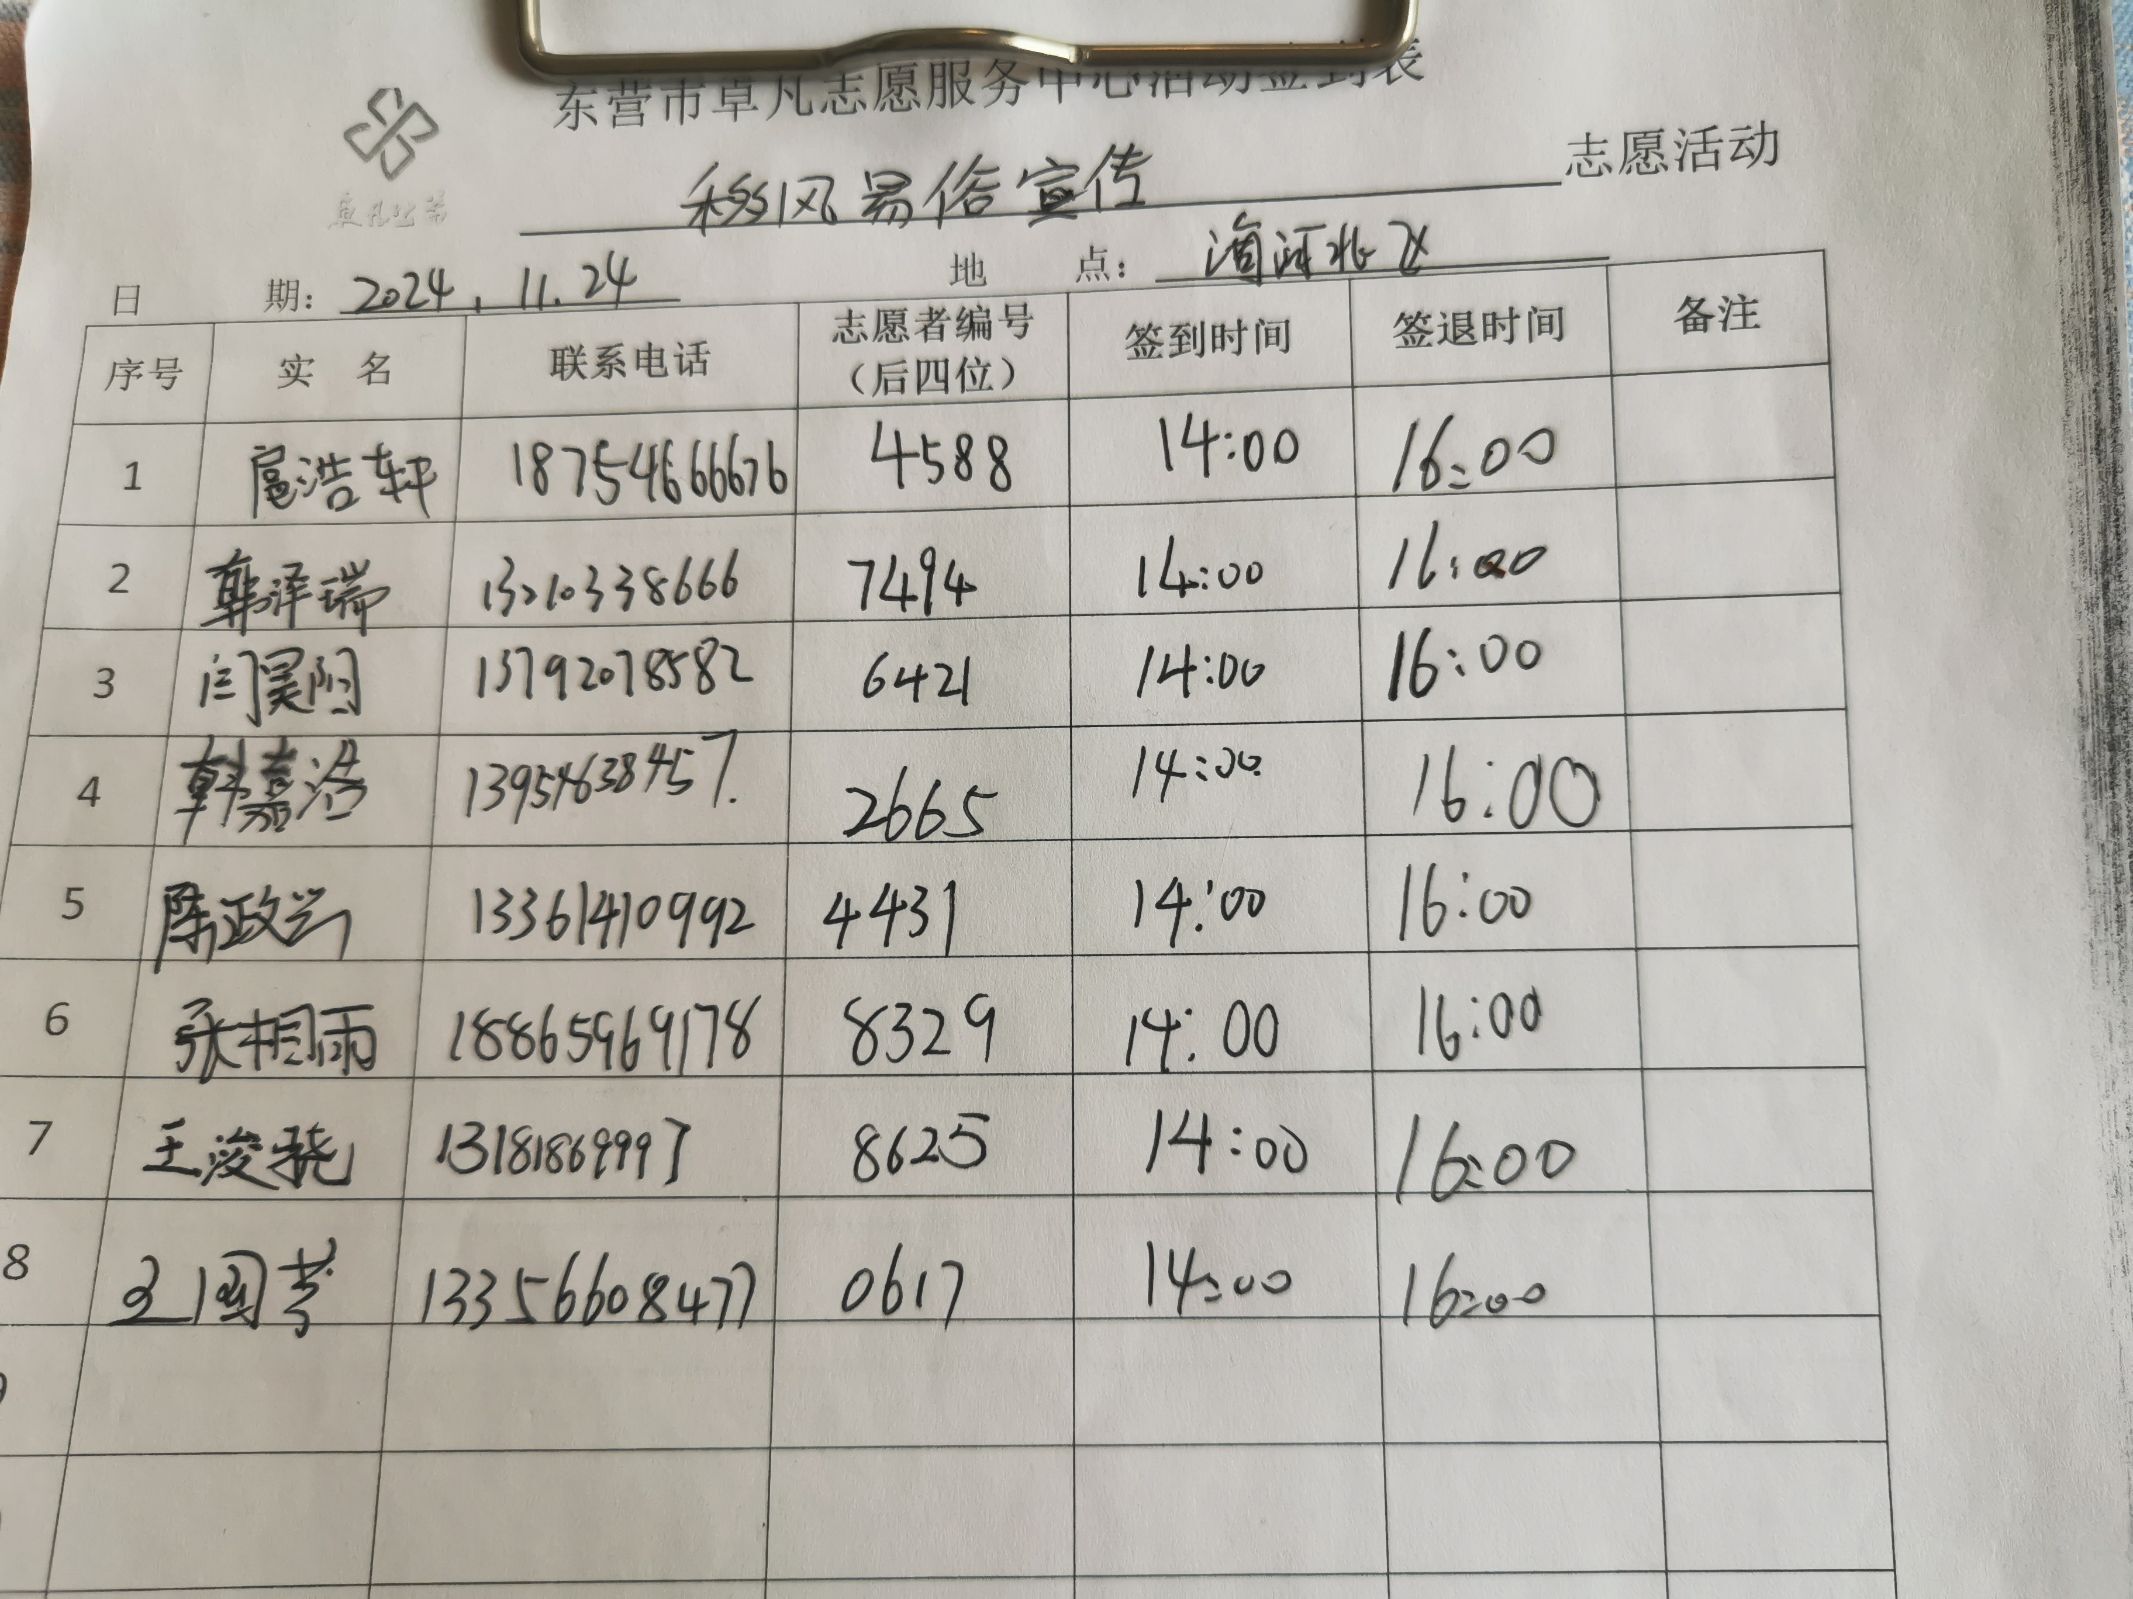 东营市草凡志愿服务中心活动签到表
移风易俗宣传 志愿活动
日 期: 2024.11.24 地 点:
序号 实 名 联系电话 志愿者编号（后四位） 签到时间 签退时间 备注
1 扈浩轩 18754666676 4588 14:00 16:00
2 韩泽瑞 13210338666 7494 14:00 16:00
3 闫昊阳 13792078582 6421 14:00 16:00
4 韩嘉浩 13954638457. 2665 14:00 16:00
5 陈政兴 13361410992 4431 14:00 16:00
6 张桐雨 18865969178 8329 14:00 16:00
7 王浚骁 13181869997 8625 14:00 16:00
8 13356608477 0617 14:00 16:00